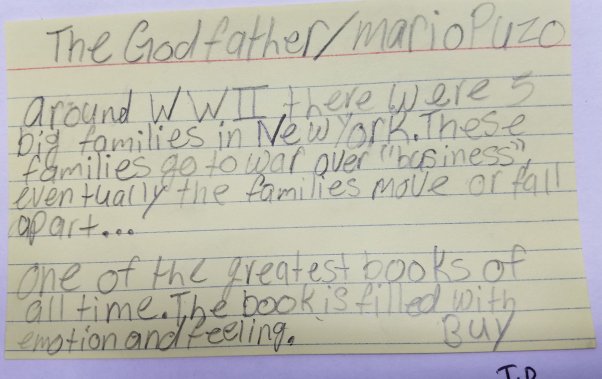 The Godfather/mario Puzo
around WWII there were 5
big families in New York. These
families go to war over "business",
eventually the families move or fall
apart...
one of the greatest books of
all time. The book is filled with
emotion and feeling. BUY
J.D